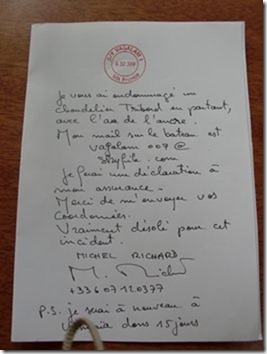 S/Y VAGALAM I
Je vous ai endommagé un
chandelier Tribord en partant,
avec l'axe de l'ancre.
Mon mail sur le bateau est
vagalam 007 @
.com
Je ferai une déclaration à
mon assurance.
Merci de m'envoyer vos
coordonnées.
Vraiment désolé pour cet
incident.
MICHEL RICHARD
M. Richard
+33607120377
P.S. je serai à nouveau à
dans 15 jours